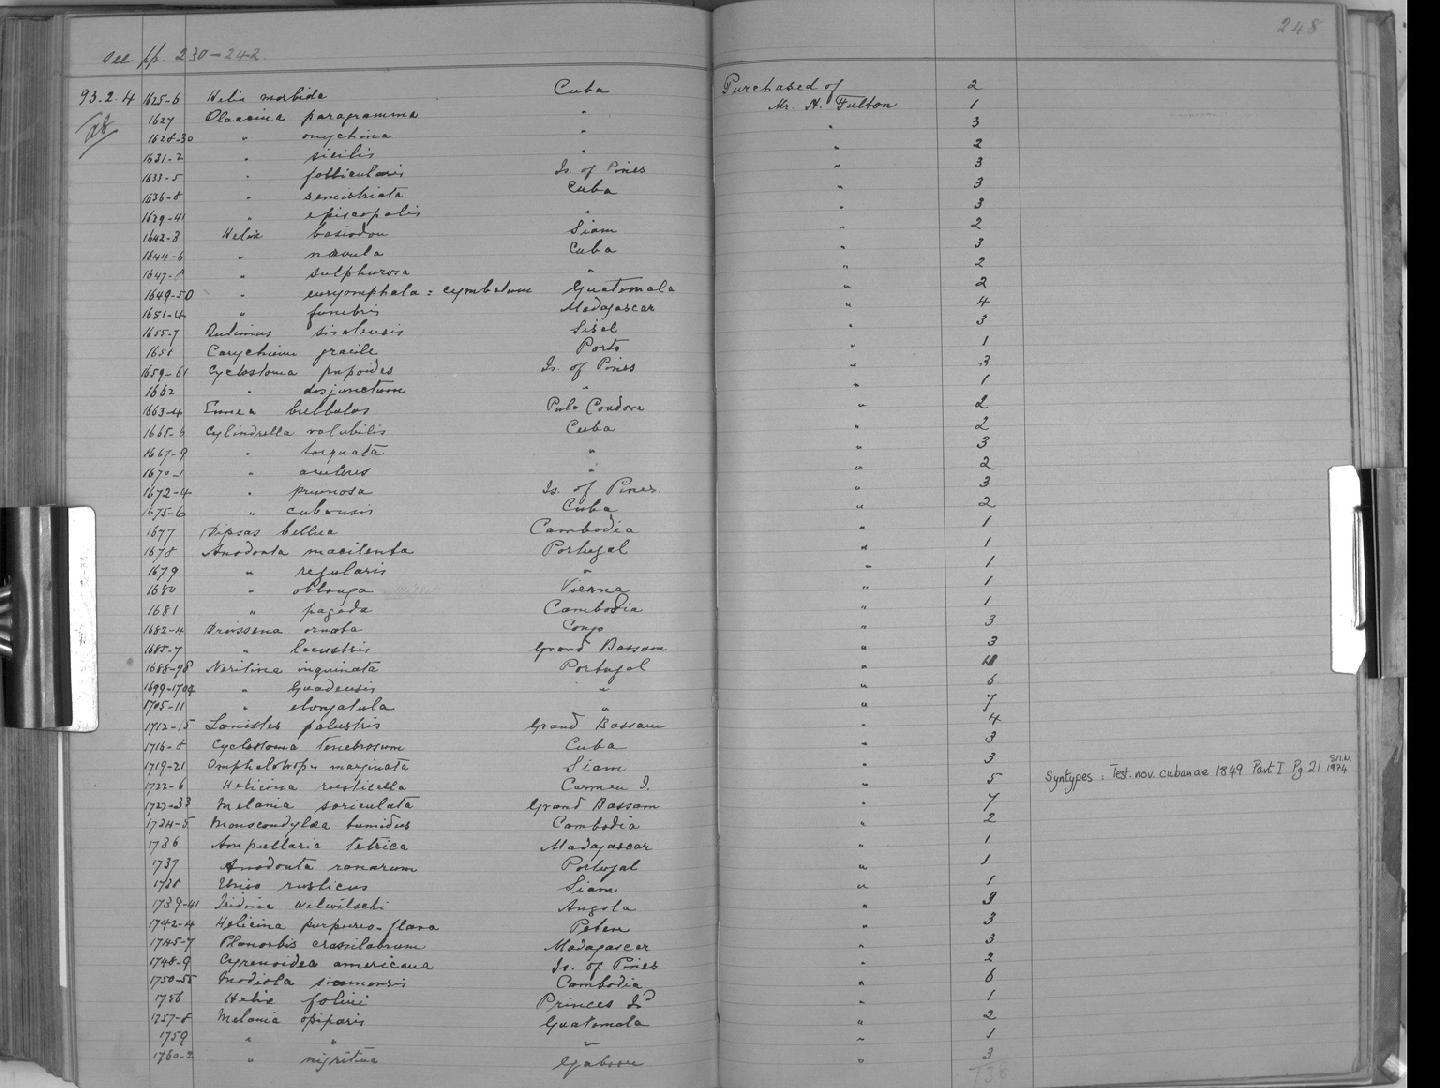 248
See pp. 230-242.
93.2.4 1625-6 Helix morbida Cuba Purchased of 2
1627 Oleacina paragramma " Mr. H. Fulton 1
1628-30 " onychina " " 3
1631-2 " sicilis " " 2
1633-5 " follicularis Is. of Pines " 3
1636-8 " semistriata Cuba " 3
1639-41 " episcopalis " " 3
1642-3 Helix basiodon Siam " 2
1644-6 " naevula Cuba " 3
1647-8 " sulphurosa " " 2
1649-50 " euryomphala = cymbalum Guatemala " 2
1651-4 " funebris Madagascar " 4
1655-7 Bulimus sisalensis Sisal " 3
1658 Carychium gracile Porto " 1
1659-61 Cyclostoma pupoides Is. of Pines " 3
1662 " disjunctum " " 1
1663-4 Ennea bulbulus Pulo Condore " 2
1665-6 Cylindrella volubilis Cuba " 2
1667-9 " torquata " " 3
1670-1 " " " 2
1672-4 " pruinosa Is. of Pines " 3
1675-6 " cubensis Cuba " 2
1677 Dipsas bellua Cambodia " 1
1678 Anodonta macilenta Portugal " 1
1679 " regularis " " 1
1680 " oblonga Vienna " 1
1681 " pagoda Cambodia " 1
1682-4 Dreissena ornata Congo " 3
1685-7 " lacustris Grand Bassam " 3
1688-98 Neritina inquinata Portugal "
1699-1704 " Guadensis " " 6
1705-11 " elongatula " " 7
1712-15 Lanistes palustris Grand Bassam " 4
1716-8 Cyclostoma tenebrosum Cuba " 3
1719-21 Omphalotropis marginata Siam " 3
1722-6 Helicina rusticella Carmen I. " 5 Syntypes: Test. nov. cubanae 1849 Part I Pg 21 1974
1727-33 Melania soriculata Grand Bassam " 7
1734-5 Monocondylaea tumidus Cambodia " 2
1736 Ampullaria tetrica Madagascar " 1
1737 Anodonta ranarum Portugal " 1
1738 Unio rusticus Siam "
1739-41 Iridina welwitschi Angola " 3
1742-4 Helicina purpureo-flava Peten " 3
1745-7 Planorbis crassilabrum Madagascar " 3
1748-9 Cyrenoidea americana Is. of Pines " 2
1750-55 Modiola siamensis Cambodia " 6
1756 Helix folini Princes Id " 1
1757-8 Melania opiparis Guatemala " 2
1759 " " " " 1
1760-2 " nigritina Gaboon " 3
138